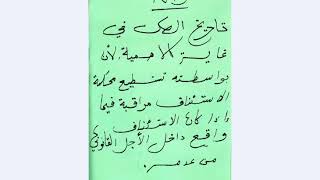 تاريخ الصك في
غاية الأهمية لأن
بواسطته تستطيع محكمة
الاستئناف مراقبة فيما
إذا كان الاستئناف
واقع داخل الأجل القانوني
من عدمه.